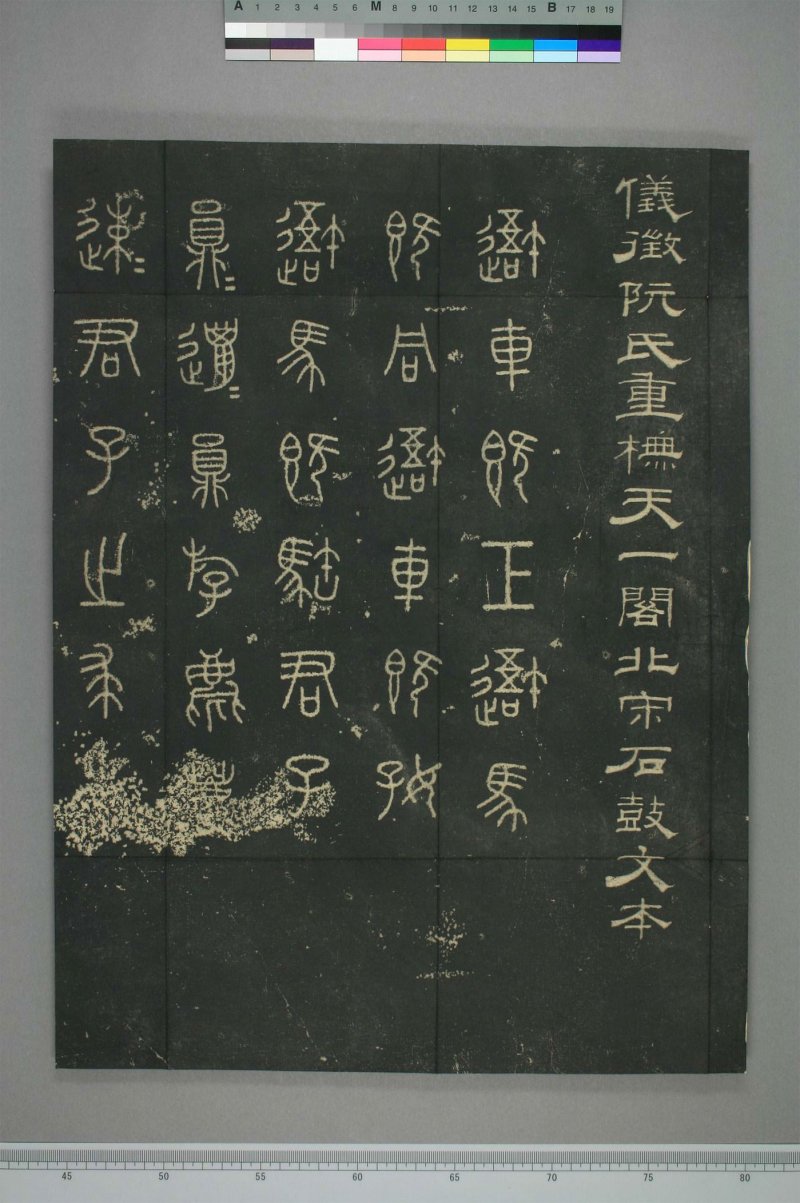 A 1 2 3 4 5 6 M 8 9 10 11 12 13 14 15 B 17 18 19
儀徵阮氏重橅天一閣北宋石鼓文本
䢒車既工䢒馬
既同䢒車既好
䢒馬既𩣡君子
員=邋=員斿麀鹿
速=君子之求
45 50 55 60 65 70 75 80